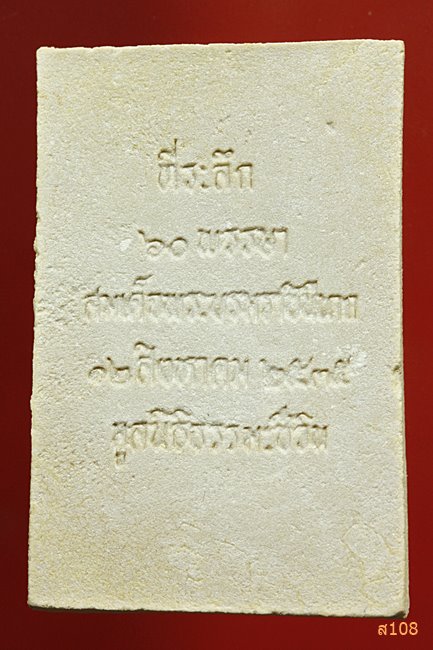 ที่ระลึก
๖๐ พรรษา
สมเด็จพระบรมราชินีนาถ
๑๒ สิงหาคม ๒๕๓๕
มูลนิธิธรรมะชีวิน
ส108